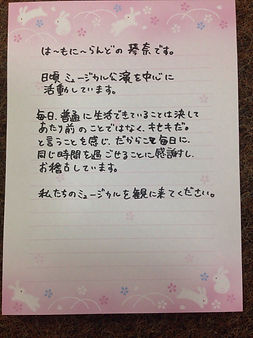 は〜もに〜らんどの 琴奈です。
日頃 ミュージカル公演を中心に
活動しています。
毎日、普通に生活できていることは決して
あたり前のことではなく、キセキだ。
と言うことを感じ、だからこそ毎日に、
同じ時間を過ごせることに感謝し、
お稽古しています。
私たちのミュージカルを観に来てください。